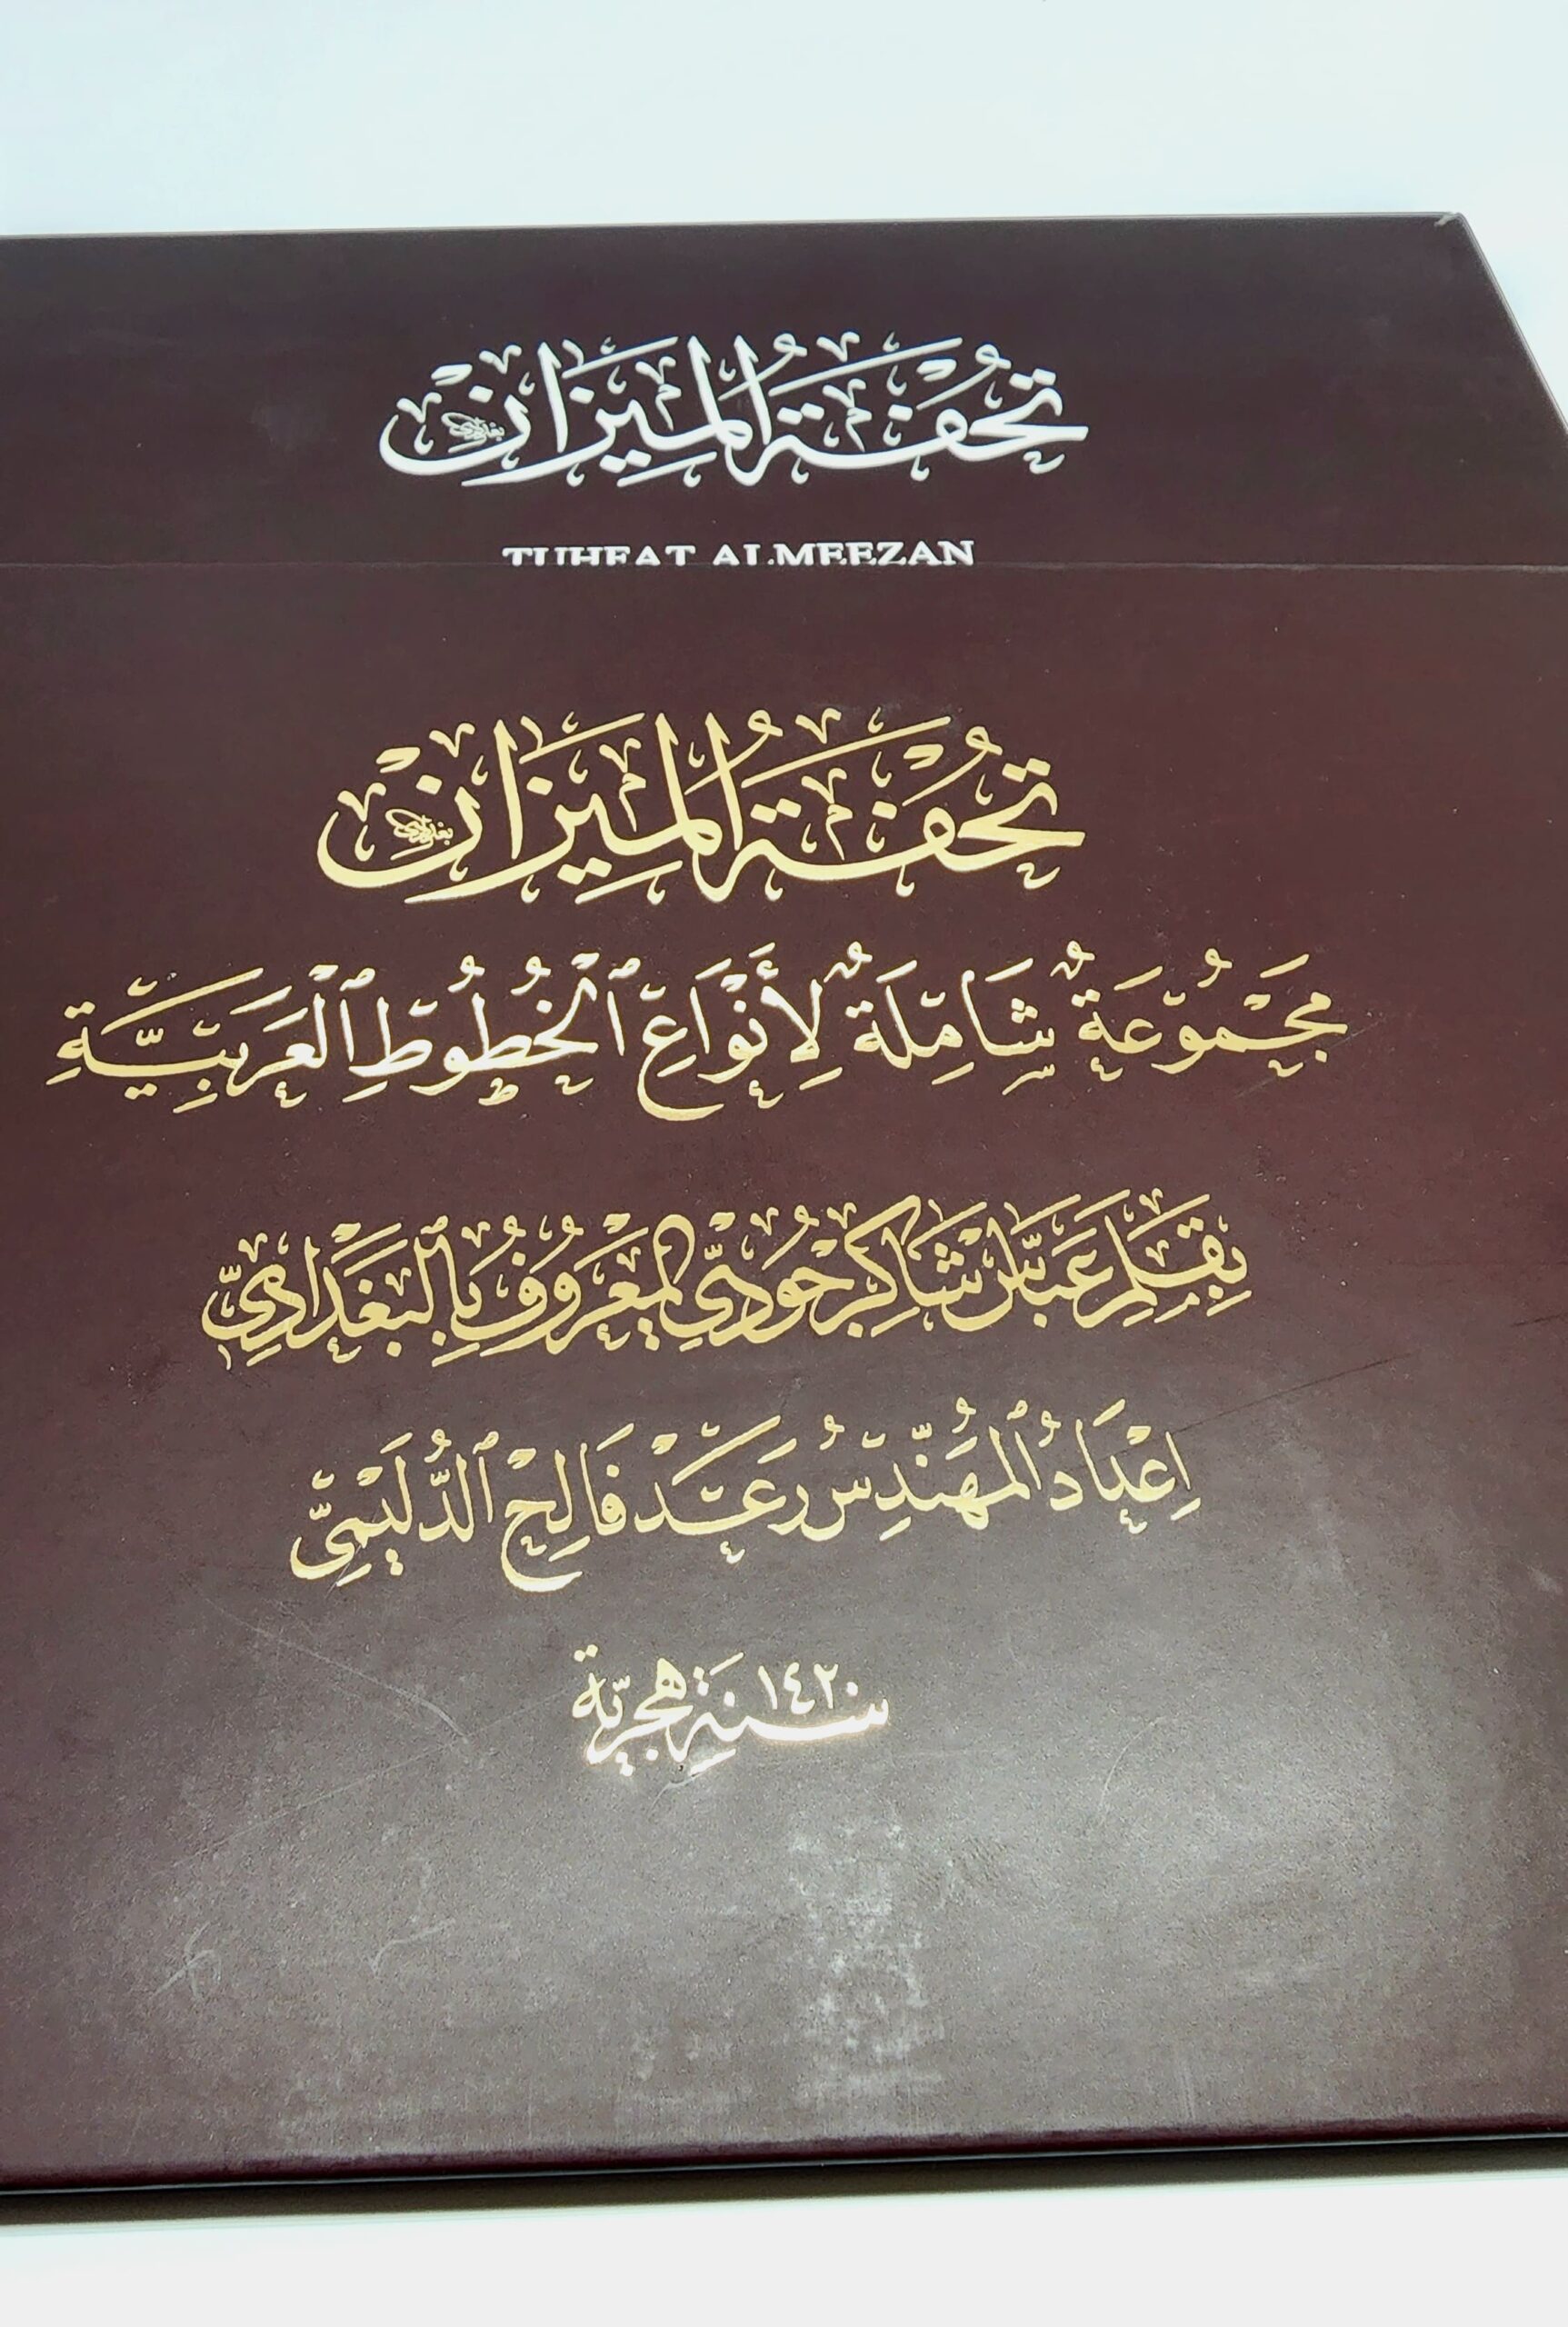 تُحْفَةُ الْمِيزَانْ
بغدادي
TUHFAT ALMEEZAN
تُحْفَةُ الْمِيزَانْ
بغدادي
مَجْمُوعَةٌ شَامِلَةٌ لِأَنْوَاعِ ٱلْخُطُوطِ ٱلْعَرَبِيَّةِ
بِقَلَمِ عَبَّاسْ شَاكِرْ جُودِيّ الْمَعْرُوفُ بِٱلْبَغْدَادِيّ
إِعْدَادُ ٱلْمُهَنْدِسُ رَعَدْ فَالِحْ ٱلدُّلَيْمِيّ
سَنَةِ ١٤٢٠ هجريّة